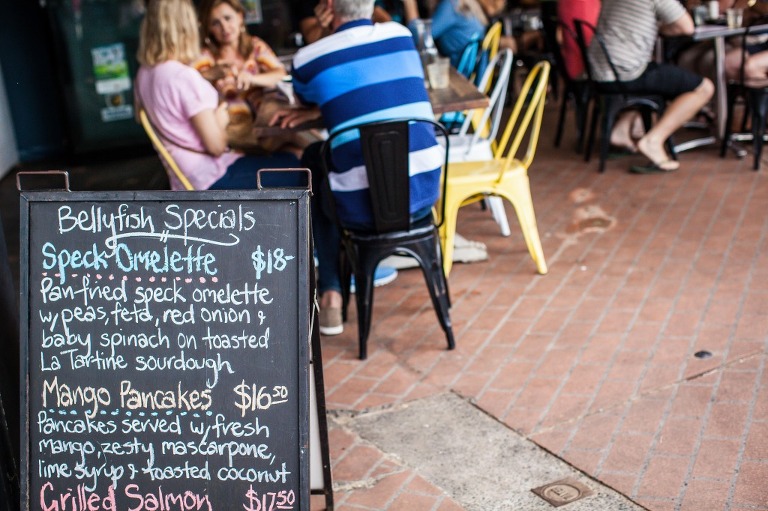 Bellyfish Specials
Speck Omelette $18-
Pan-fried speck omelette
w/ peas, feta, red onion &
baby spinach on toasted
La Tartine sourdough
Mango Pancakes $16.50
Pancakes served w/ fresh
mango, zesty mascarpone,
lime syrup & toasted coconut
Grilled Salmon $17.50